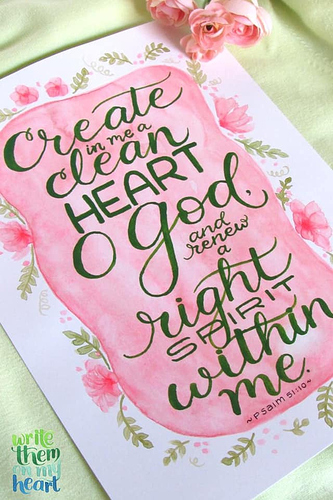 Create
in me a
clean
HEART
O God,
and
renew
a
right
SPIRIT
within
me.
~Psalm 51:10~
write
them
on my
heart